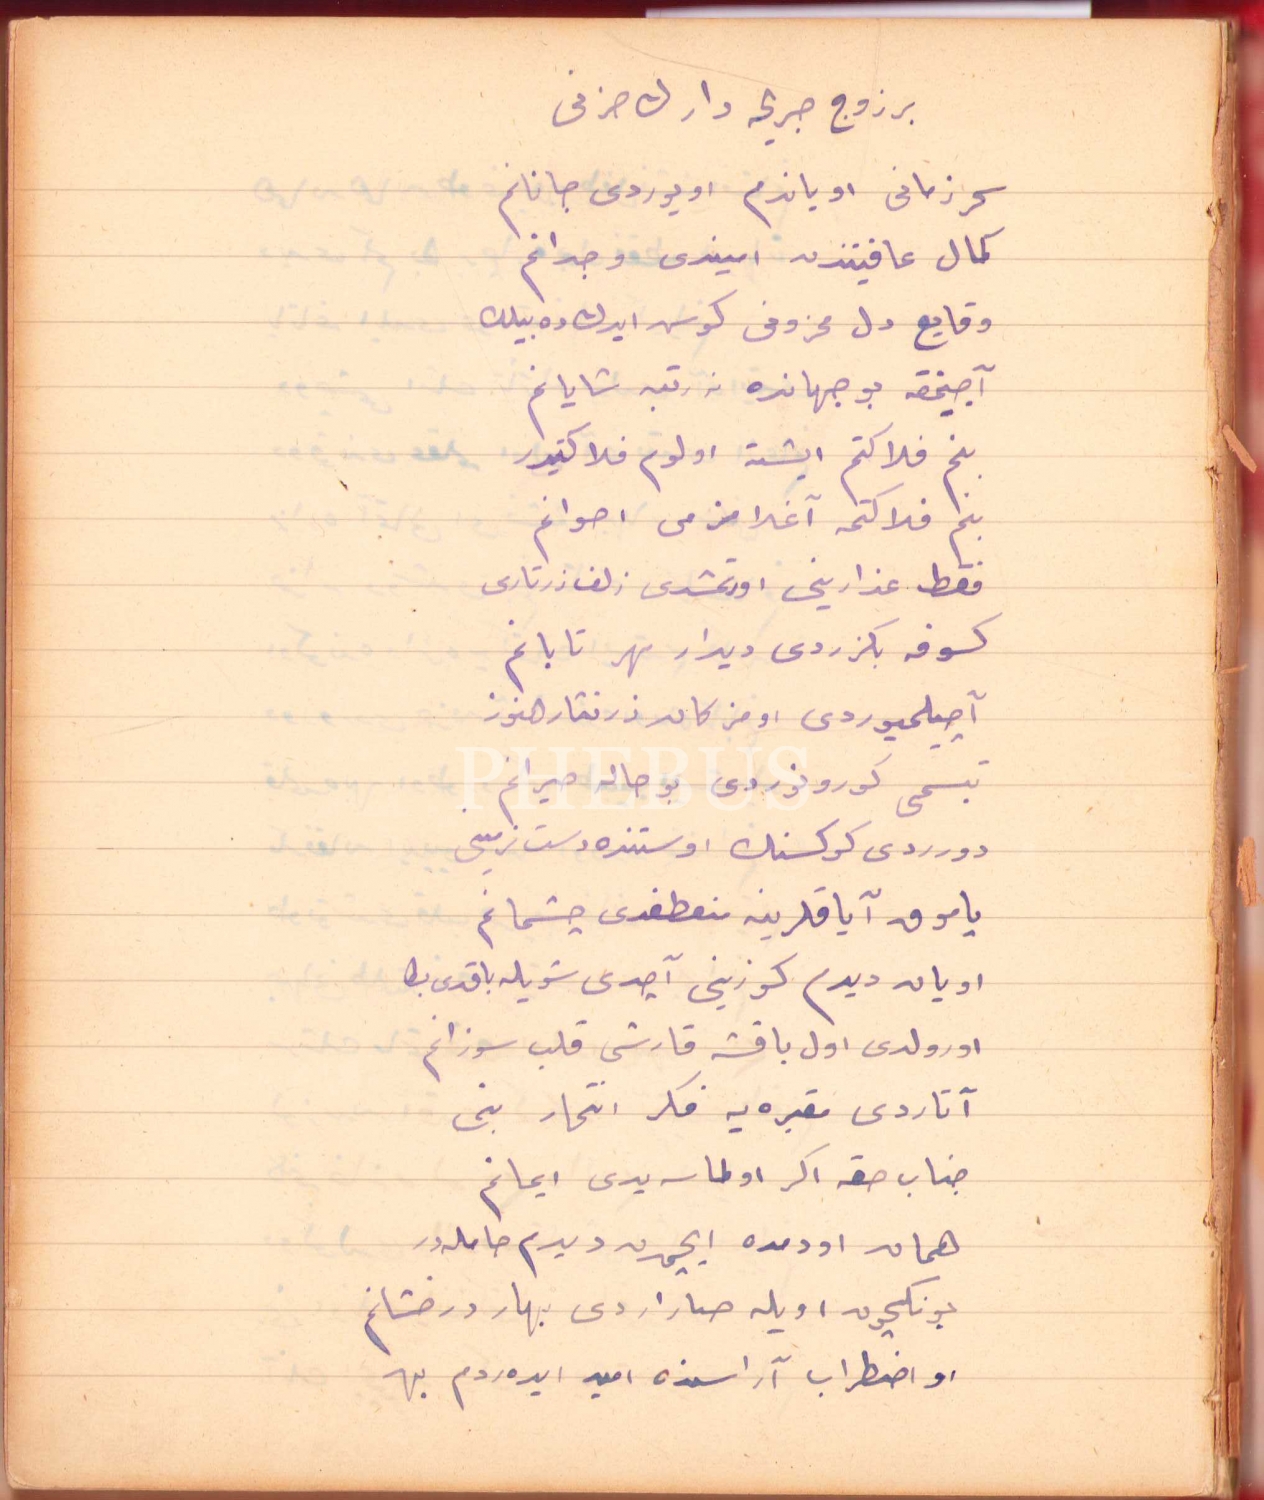 بر زوج جریحه دارك حزنی
سحر زمانی اویاندم اویوردی جانانم
كمال عافیتندن امیندی وجدانم
وقایع دل محزونی كوش ایدركده بیلك
آجینمقه بو جهانده نه رتبه شایانم
بنم فلاكتم ایشته اولوم فلاكتیدر
بنم فلاكتمه آغلامزمی اخوانم
فقط عذارینی اورتمشدی زلف زرتاری
كسوفه بكزردی دیدار مهر تابانم
آچیلمیوردی او مژكان هنوز
تبسمی كورونوردی بو حاله حیرانم
دورردی كوكسنك اوستنده دست
پاموق آیاقلرینه منعطفدی چشمانم
اویان دیدم كوزینی آچدی شویله باقدی بكا
اورولدی اول باقشه قارشی قلب سوزانم
آتاردی مقبره یه فكر انتحار بنی
جناب حقه اكر اولماسه یدی ایمانم
همان اودمده ایچمدن دیدم حامله در
بونكچون اویله صارارردی بهار درخشانم
او اضطراب آراسنده امید ایده ردم
PHEBUS